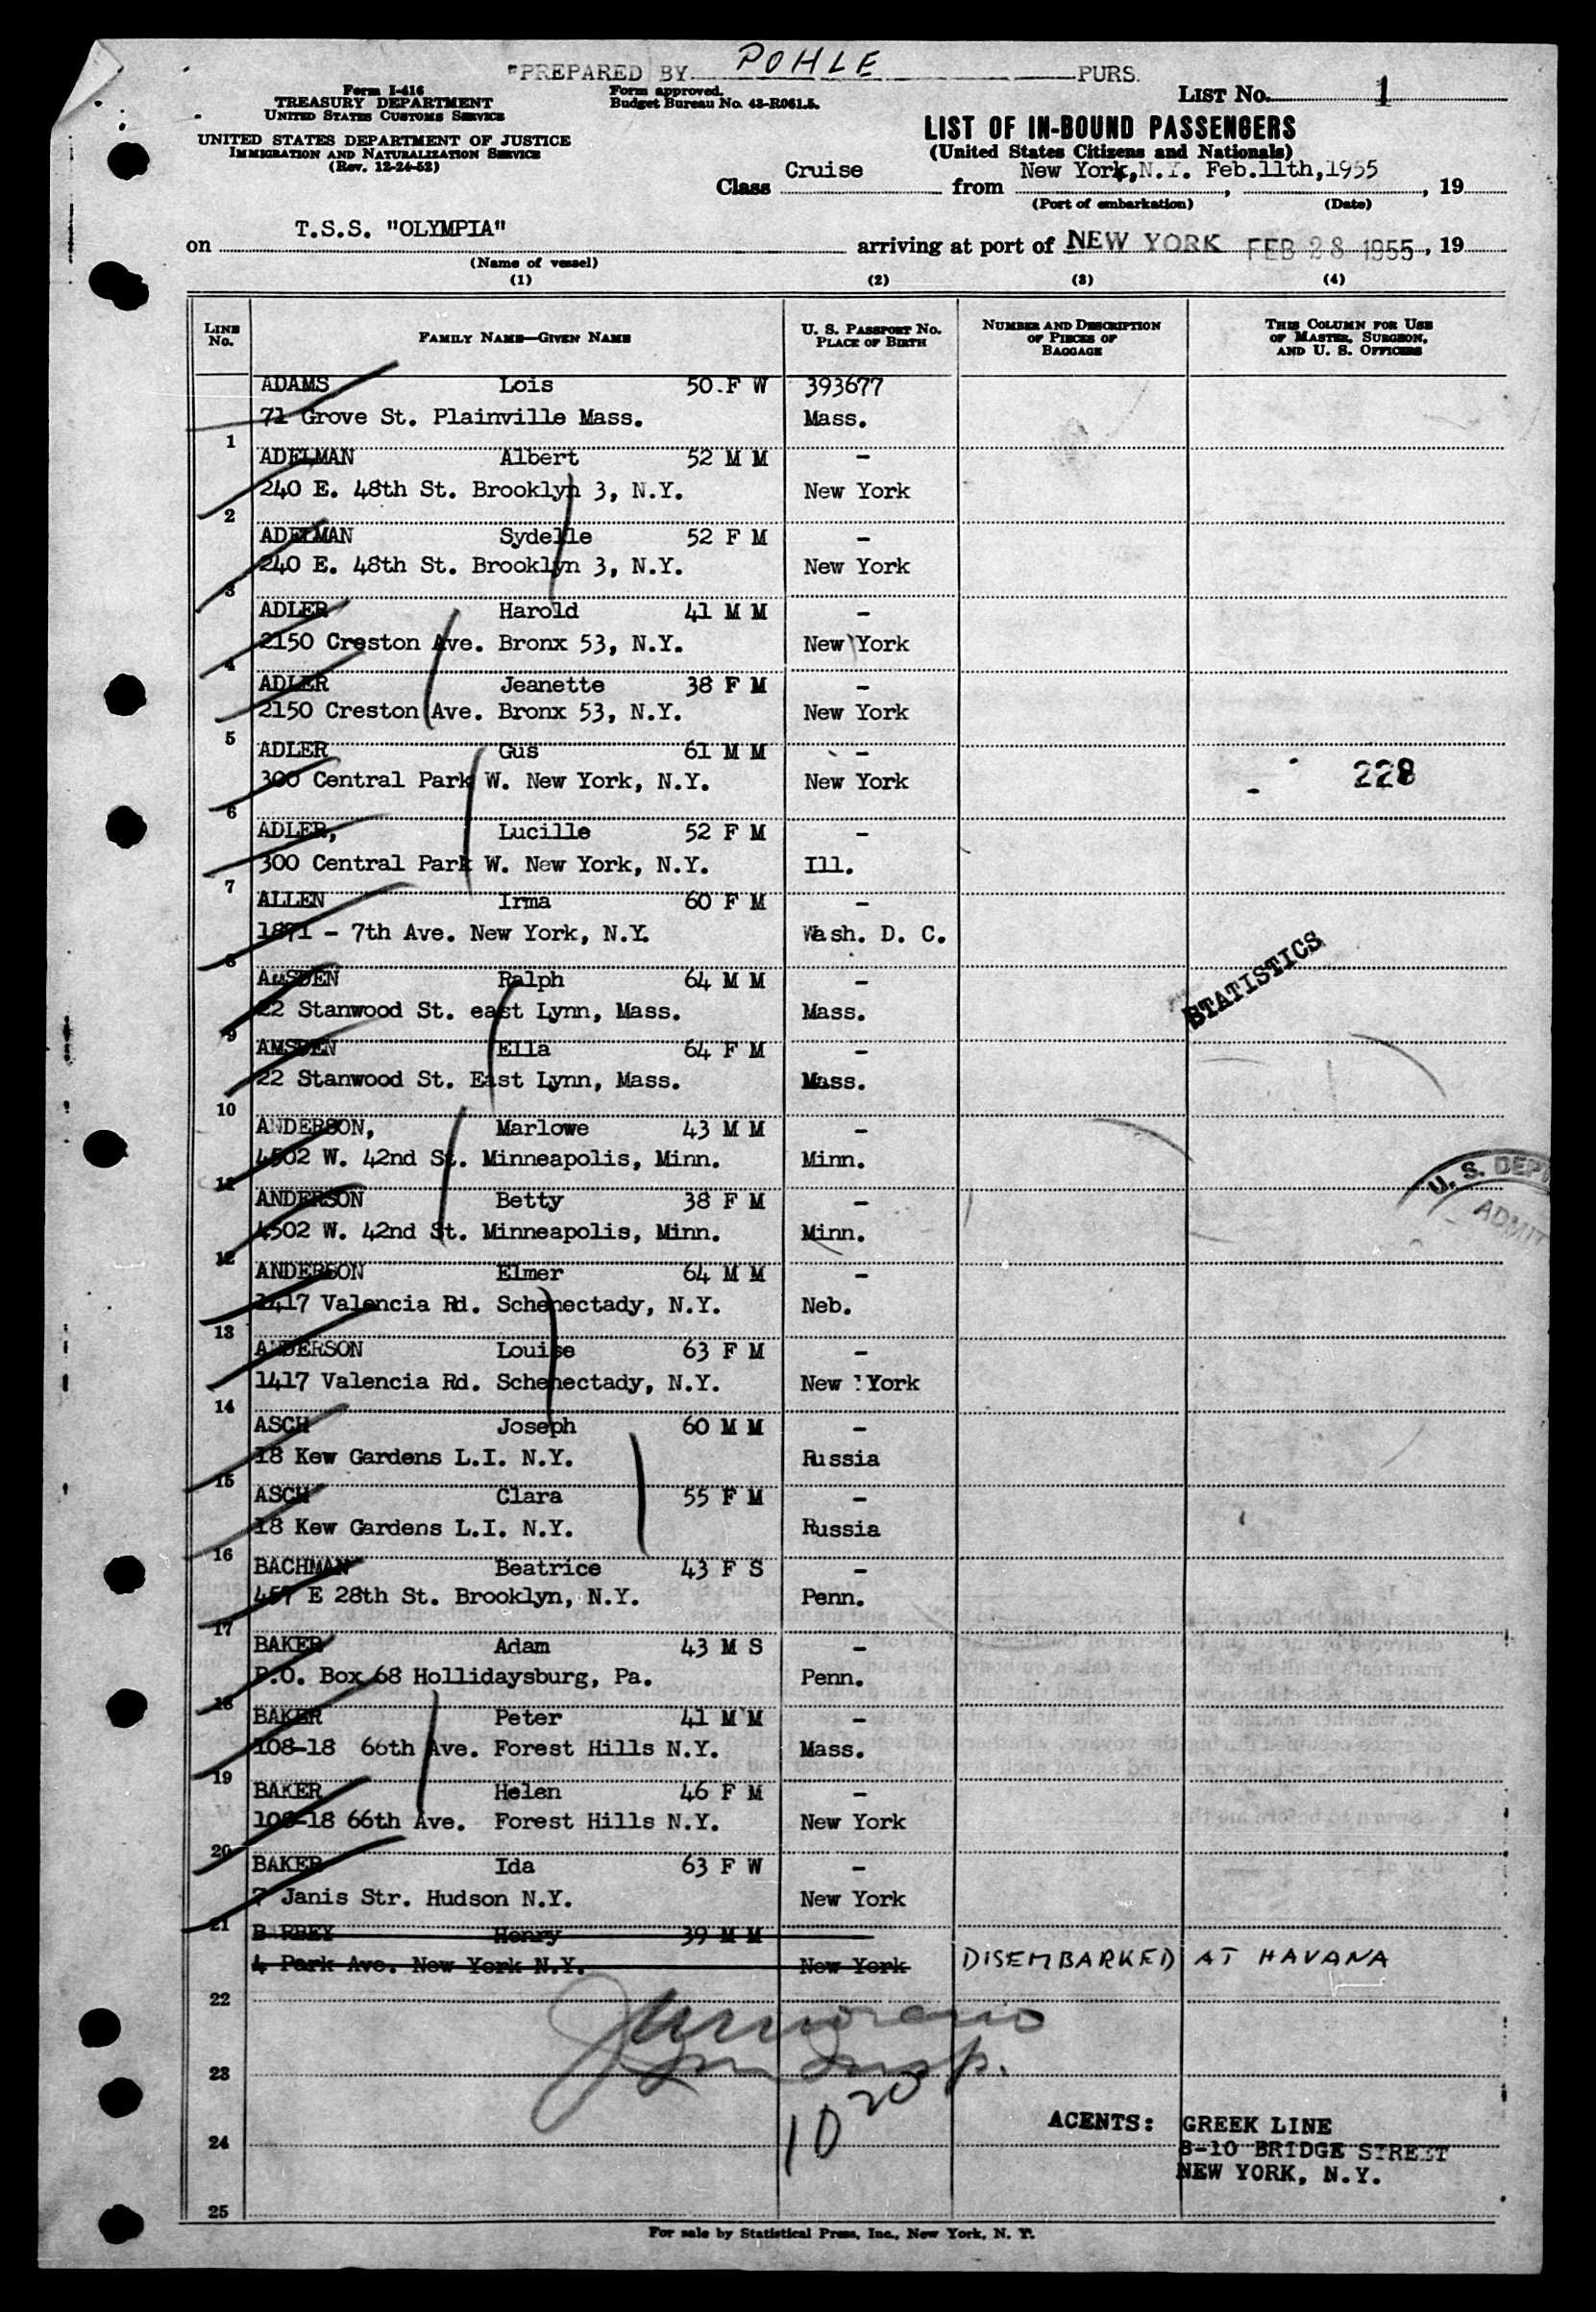 PREPARED BY POHLE PURS.
Form I-416
TREASURY DEPARTMENT
UNITED STATES CUSTOMS SERVICE
Form approved.
Budget Bureau No. 43-R061.5.
LIST No. 1
UNITED STATES DEPARTMENT OF JUSTICE
IMMIGRATION AND NATURALIZATION SERVICE
(Rev. 12-24-52)
LIST OF IN-BOUND PASSENGERS
(United States Citizens and Nationals)
Class Cruise from New York, N.Y. Feb.11th,1955, 19
(Port of embarkation) (Date)
on T.S.S. "OLYMPIA" arriving at port of NEW YORK FEB 28 1955, 19
(Name of vessel)
(1) (2) (3) (4)
LINE No. FAMILY NAME—GIVEN NAME U. S. PASSPORT No. PLACE OF BIRTH NUMBER AND DESCRIPTION OF PIECES OF BAGGAGE THIS COLUMN FOR USE OF MASTER, SURGEON, AND U. S. OFFICERS
ADAMS Lois 50 F W 393677
71 Grove St. Plainville Mass. Mass.
1
ADELMAN Albert 52 M M -
240 E. 48th St. Brooklyn 3, N.Y. New York
2
ADELMAN Sydelle 52 F M -
240 E. 48th St. Brooklyn 3, N.Y. New York
3
ADLER Harold 41 M M -
2150 Creston Ave. Bronx 53, N.Y. New York
4
ADLER Jeanette 38 F M -
2150 Creston Ave. Bronx 53, N.Y. New York
5
ADLER Gus 61 M M -
300 Central Park W. New York, N.Y. New York 228
6
ADLER, Lucille 52 F M -
300 Central Park W. New York, N.Y. Ill.
7
ALLEN Irma 60 F M -
1871 - 7th Ave. New York, N.Y. Wash. D. C.
8
STATISTICS
AmSDEN Ralph 64 M M -
22 Stanwood St. east Lynn, Mass. Mass.
9
AMSDEN Ella 64 F M -
22 Stanwood St. East Lynn, Mass. Mass.
10
ANDERSON, Marlowe 43 M M -
4502 W. 42nd St. Minneapolis, Minn. Minn.
11
U. S. DEPT
ADMIT
ANDERSON Betty 38 F M -
4502 W. 42nd St. Minneapolis, Minn. Minn.
12
ANDERSON Elmer 64 M M -
1417 Valencia Rd. Schenectady, N.Y. Neb.
13
ANDERSON Louise 63 F M -
1417 Valencia Rd. Schenectady, N.Y. New York
14
ASCH Joseph 60 M M -
18 Kew Gardens L.I. N.Y. Russia
15
ASCH Clara 55 F M -
18 Kew Gardens L.I. N.Y. Russia
16
BACHMAN Beatrice 43 F S -
457 E 28th St. Brooklyn, N.Y. Penn.
17
BAKER Adam 43 M S -
P.O. Box 68 Hollidaysburg, Pa. Penn.
18
BAKER Peter 41 M M -
108-18 66th Ave. Forest Hills N.Y. Mass.
19
BAKER Helen 46 F M -
108-18 66th Ave. Forest Hills N.Y. New York
20
BAKER Ida 63 F W -
7 Janis Str. Hudson N.Y. New York
21
BARBEY Henry 39 M M
4 Park Ave. New York N.Y. New York DISEMBARKED AT HAVANA
22
23
10 20
AGENTS: GREEK LINE
24
8-10 BRIDGE STREET
NEW YORK, N.Y.
25
For sale by Statistical Press, Inc., New York, N. Y.